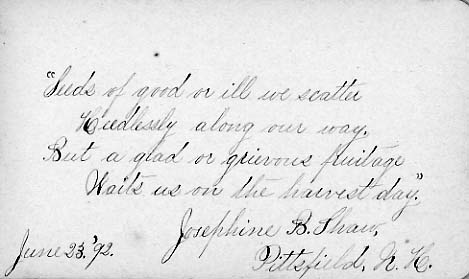 "Seeds of good or ill we scatter
Heedlessly along our way,
But a glad or grievous fruitage
Waits us on the harvest day."
Josephine B. Shaw,
June 23, '92.
Pittsfield, N. H.